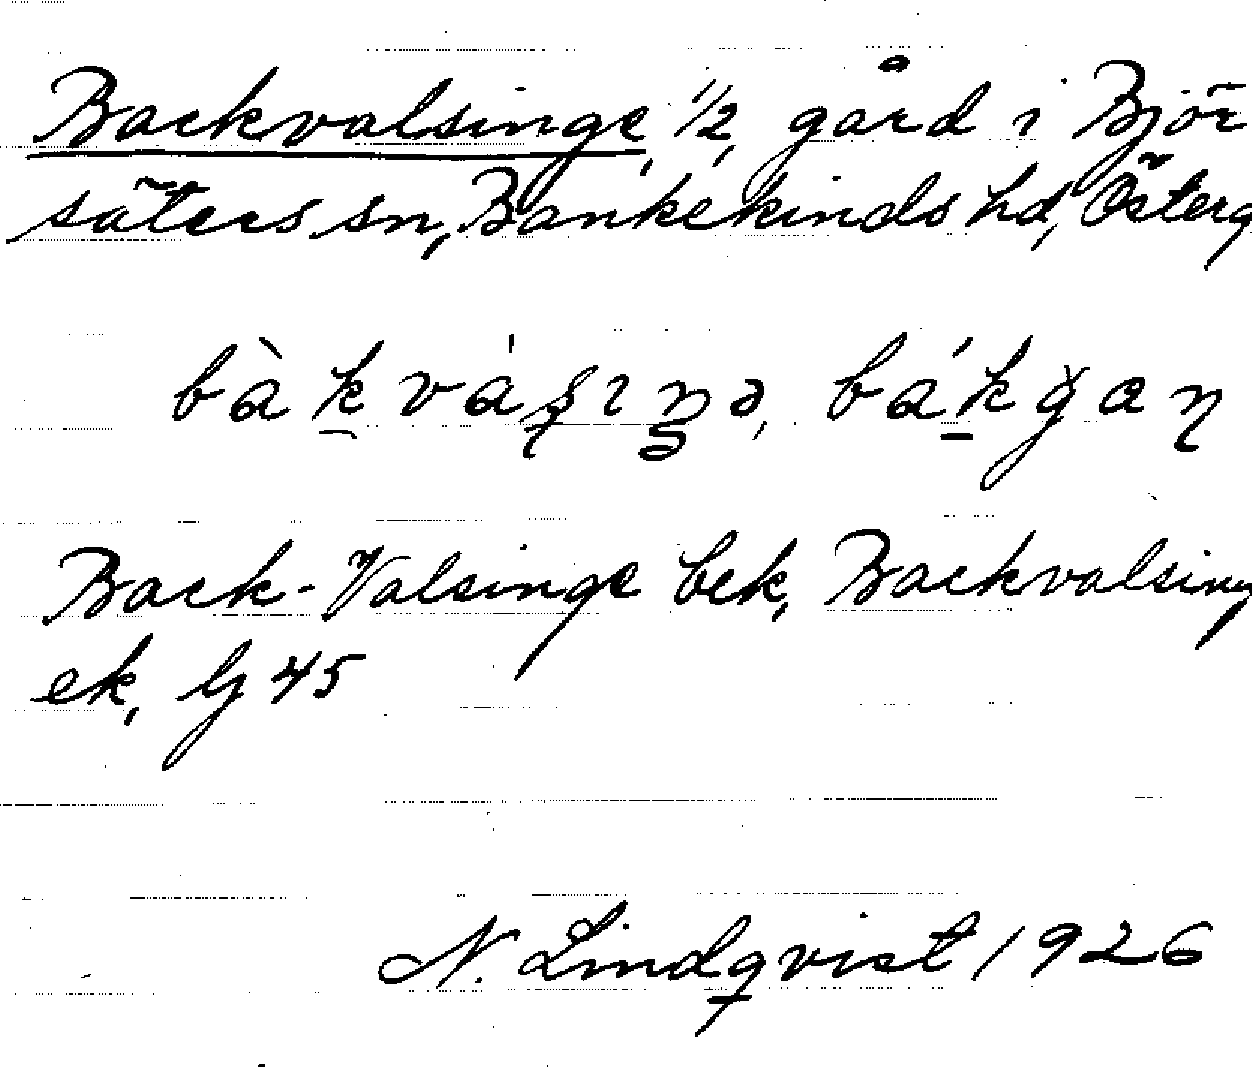 Backvalsinge, 1/2, gård i Björ
säters sn, Bankekinds hd, Österg
Back-Valsinge bek, Backvalsing
ek, G 45
N. Lindqvist 1926